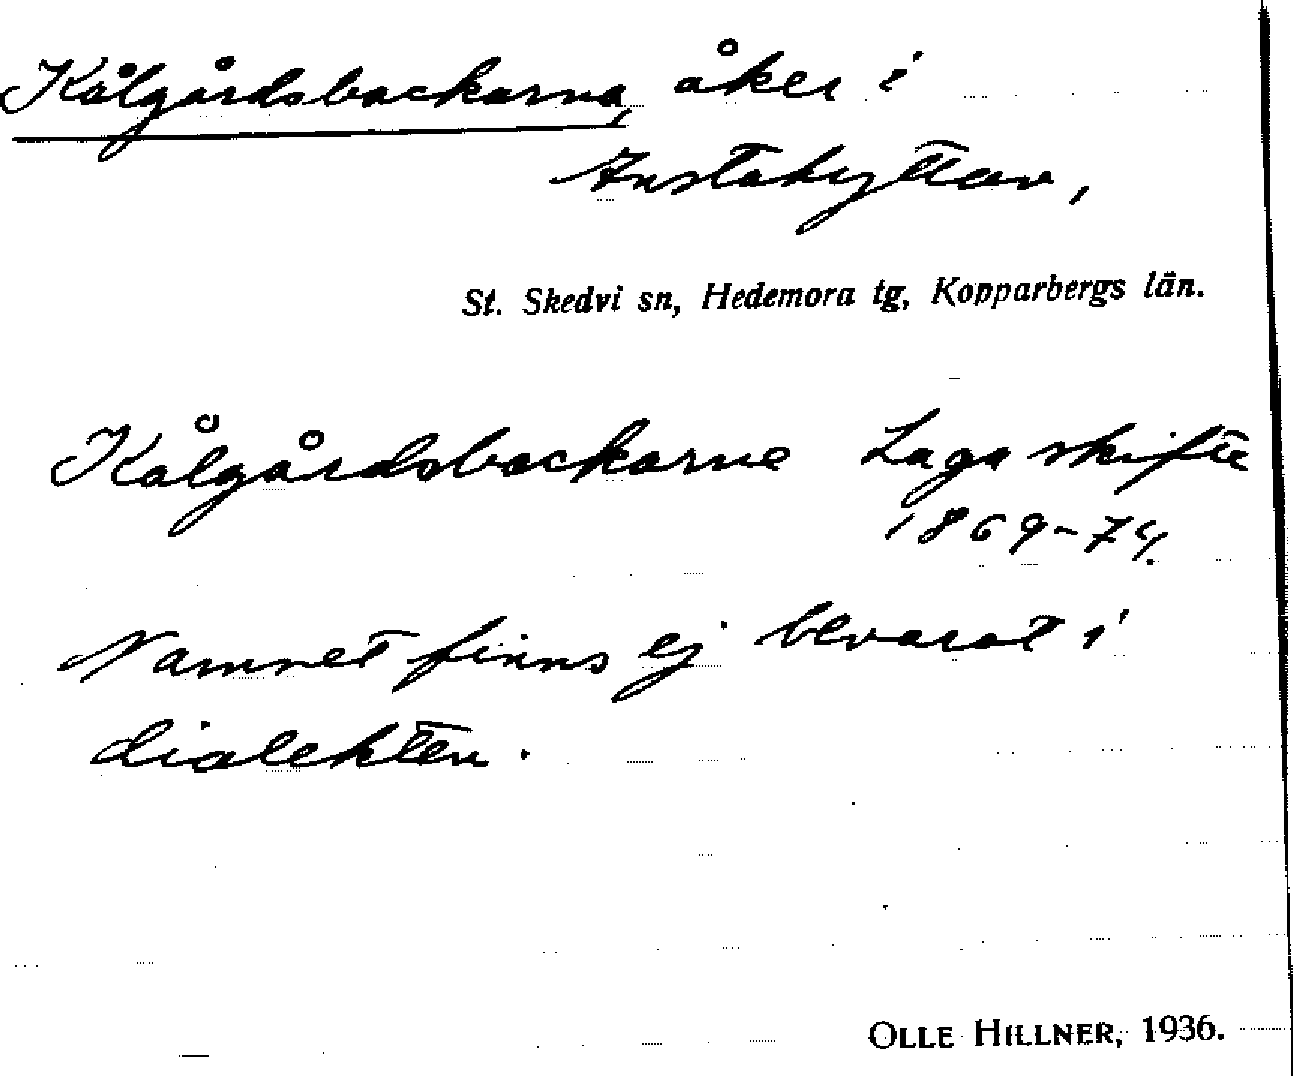 Kålgårdsbackarna, åker i
Anstahyttan,
St. Skedvi sn, Hedemora tg, Kopparbergs län.
Kålgårdsbackarne Laga skifte
1869-74.
Namnet finns ej bevarat i
dialekten.
OLLE HILLNER, 1936.